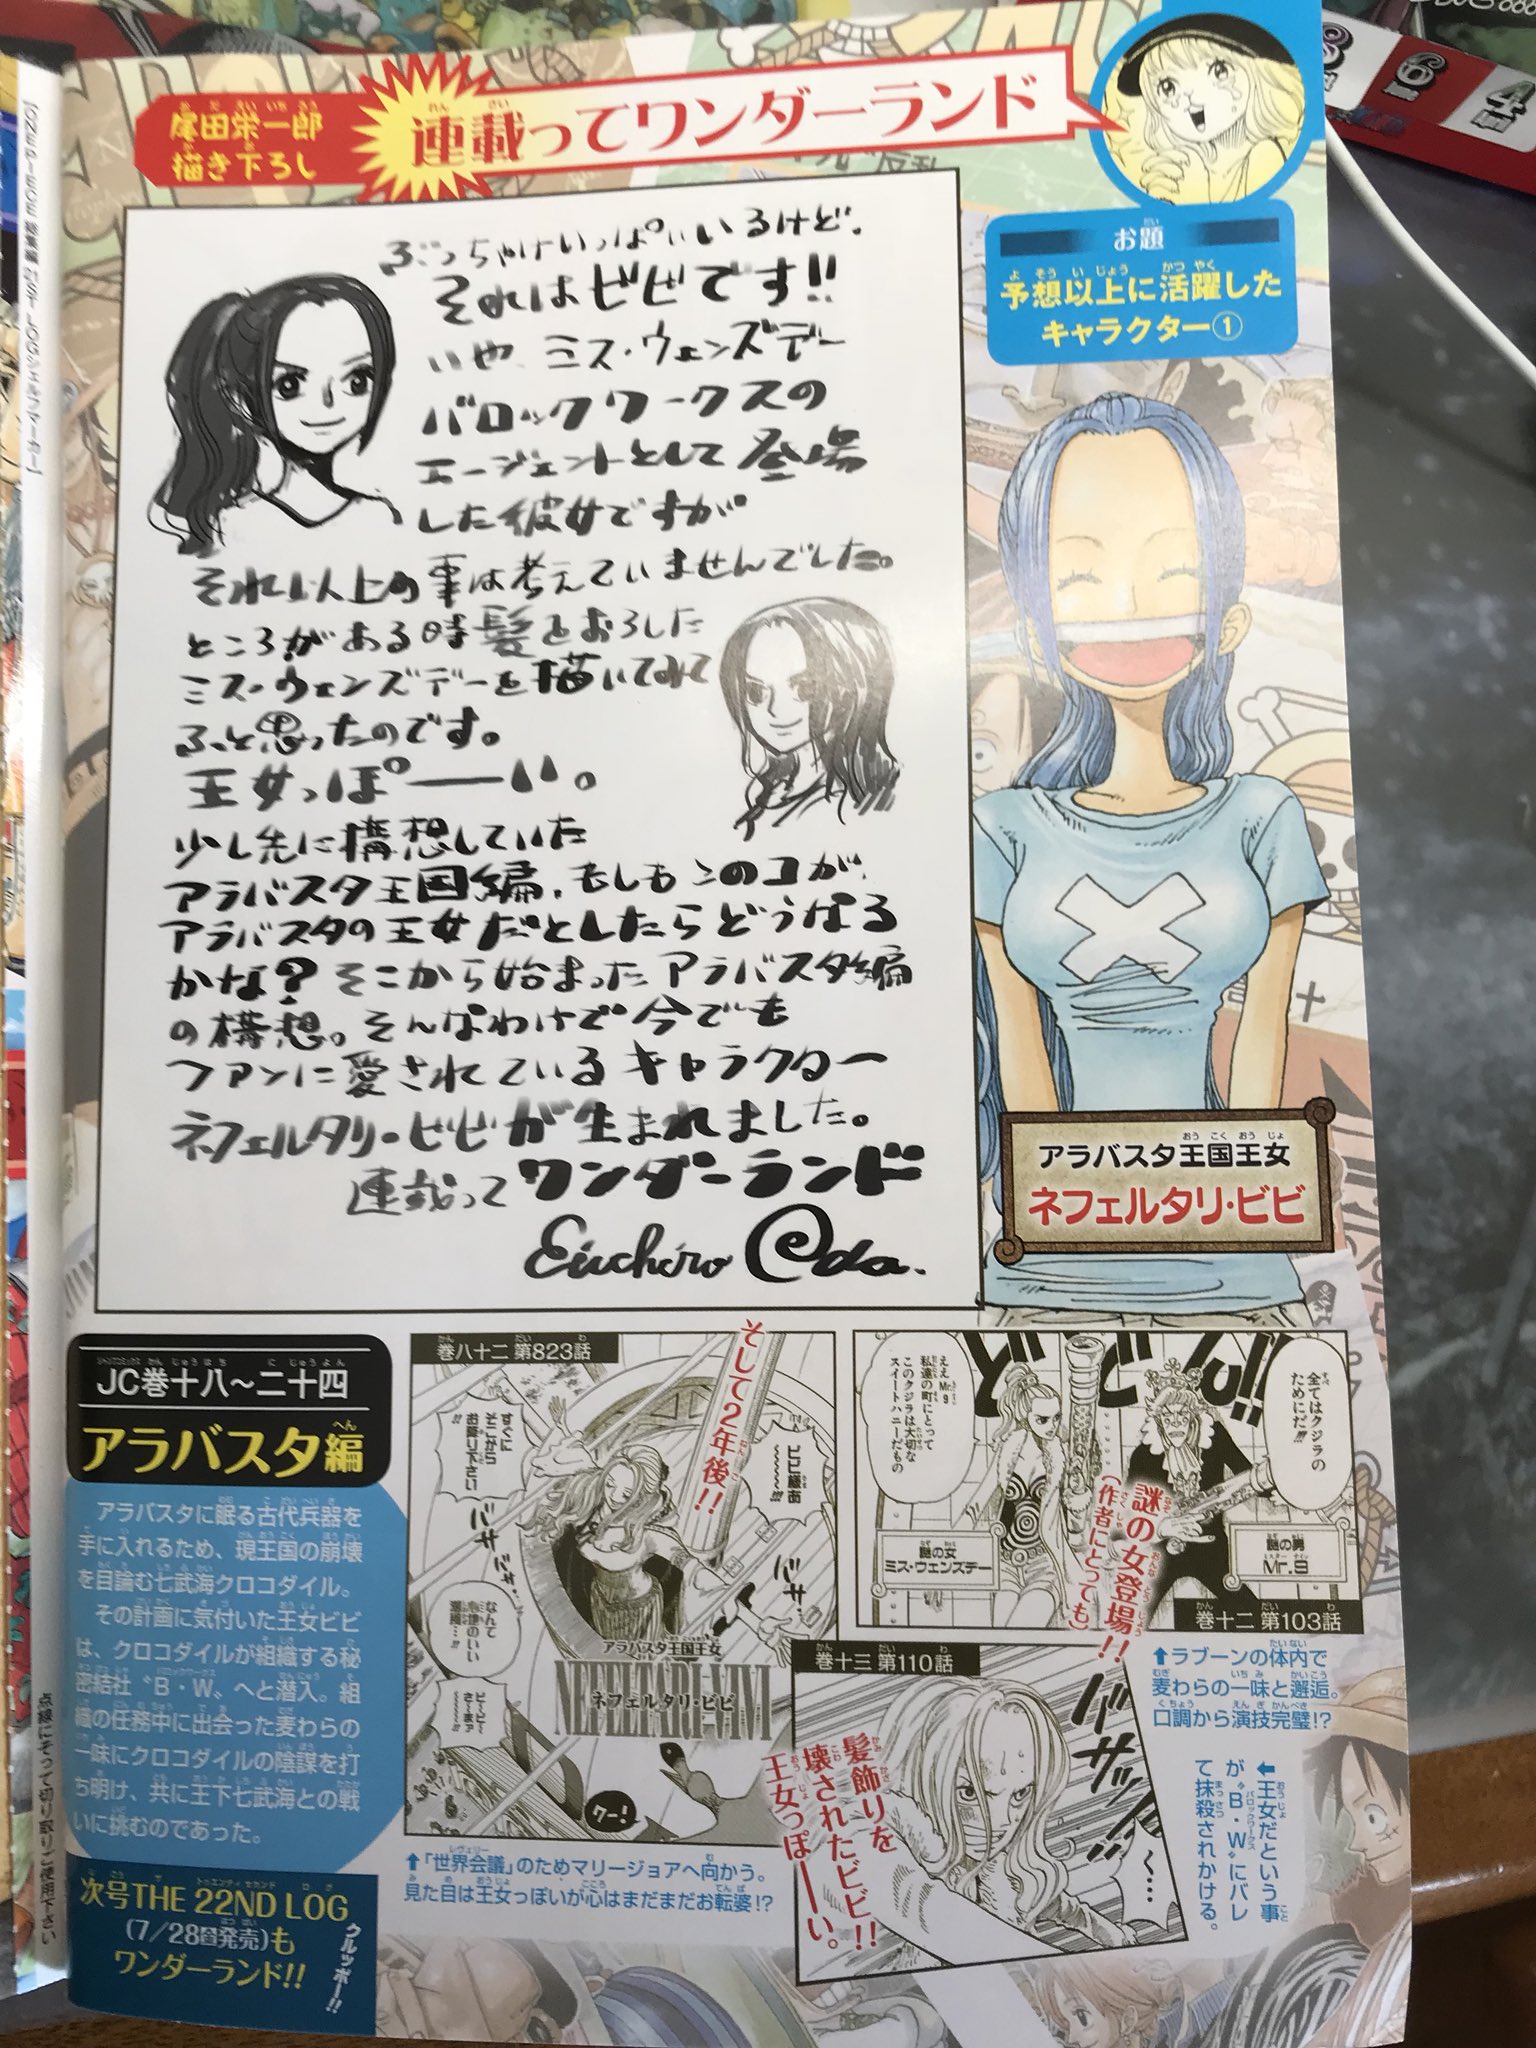 尾田栄一郎
描き下ろし
連載ってワンダーランド
お題
予想以上に活躍した
キャラクター①
ぶっちゃけいっぱいいるけど、
それはビビです!!
いや、ミス・ウェンズデー
バロックワークスの
エージェントとして登場
した彼女ですが
それ以上の事は考えていませんでした。
ところがある時髪をおろした
ミス・ウェンズデーを描いてみて
ふっと思ったのです。
王女っぽーい。
少し先に構想していた
アラバスタ王国編、もしもこのコが、
アラバスタの王女だとしたらどうなる
かな?そこから始まったアラバスタ編
の構想。そんなわけで今でも
ファンに愛されているキャラクター
ネフェルタリ・ビビが生まれました。
連載ってワンダーランド
Eiichiro Oda.
アラバスタ王国王女
ネフェルタリ・ビビ
JC巻十八〜二十四
アラバスタ編
アラバスタに眠る古代兵器を
手に入れるため、現王国の崩壊
を目論む七武海クロコダイル。
その計画に気付いた王女ビビ
は、クロコダイルが組織する秘
密結社〝B・W〟へと潜入。組
織の任務中に出会った麦わらの
一味にクロコダイルの陰謀を打
ち明け、共に王下七武海との戦
いに挑むのであった。
次号THE 22ND LOG
(7/28発売)も
ワンダーランド!!
クルッポー!!
巻十二 第103話
全てはクジラの
ためにだ!!!
ドドン!!
ええMr.9
私達の町にとって
このクジラは大切な
スイートハニーだもの
謎の男
Mr.9
謎の女
ミス・ウェンズデー
謎の女登場!!
(作者にとっても)
⬆ラブーンの体内で
麦わらの一味と邂逅。
口調から演技完璧!?
巻十三 第110話
バサッ!!
く…
髪飾りを
壊されたビビ!!
王女っぽーい。
⬅王女だという事
が〝B・W〟にバレ
て抹殺されかける。
巻八十二 第823話
そして2年後!!
すぐに
そこから
お降り下さい
!!
バサバサ
なんて
クエー!
アラバスタ王国王女
NEFELTARI・VIVI
ネフェルタリ・ビビ
⬆「世界会議」のためマリージョアへ向かう。
見た目は王女っぽいが心はまだまだお転婆!?
[ONE PIECE 総集編 21ST LOGシェルフマーカー]
点線にそって切り取りご使用下さい
6
4